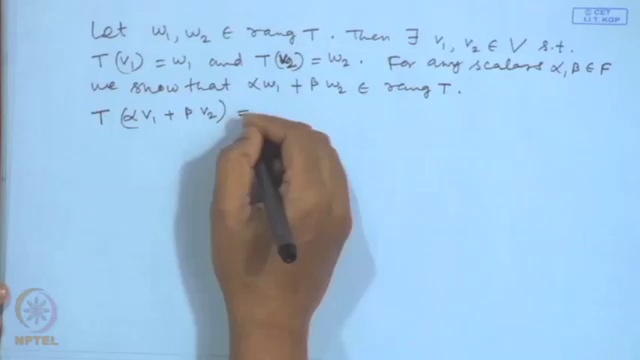 © CET
I.I.T. KGP
Let w₁, w₂ ∈ rang T. Then ∃ v₁, v₂ ∈ V s.t.
T(v₁) = w₁ and T(v₂) = w₂. For any scalars α, β ∈ F
we show that αw₁ + βw₂ ∈ rang T.
T(αv₁ + βv₂) =
NPTEL